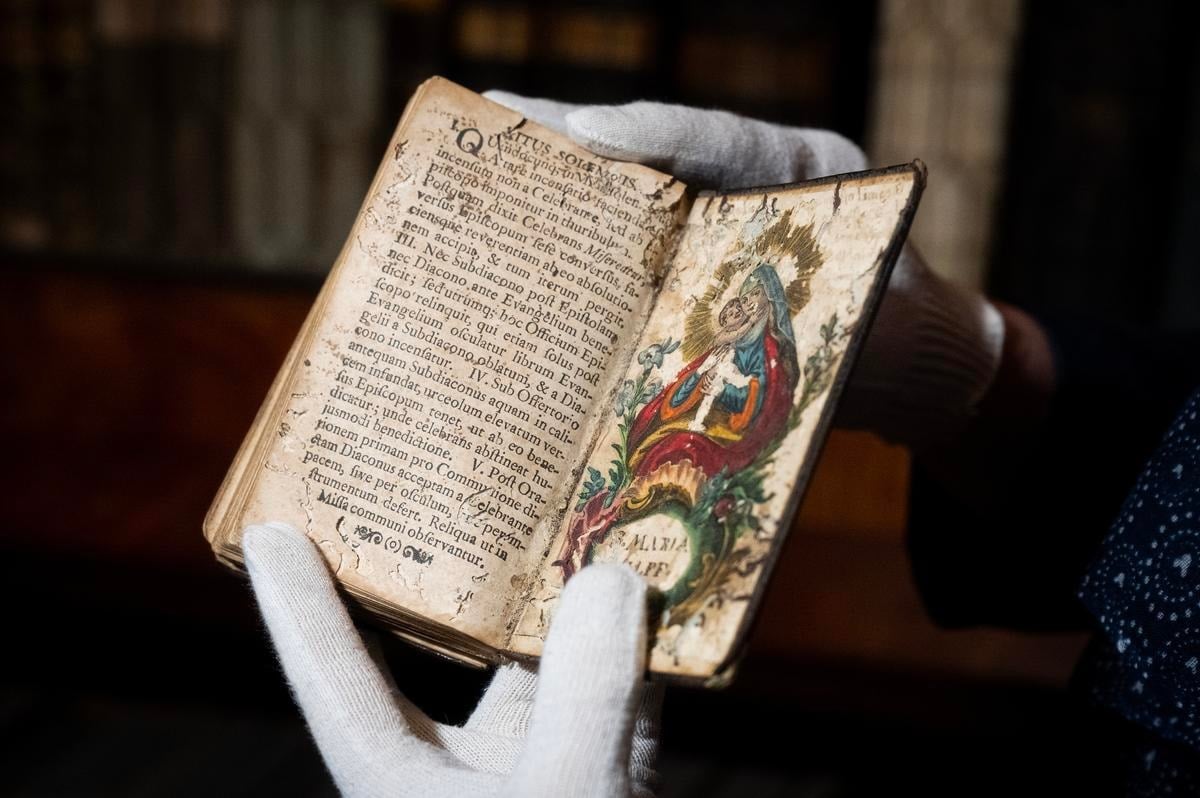 RITUS SOLEMNIS.
incensum non a Celebrante, sed ab
piscopo imponitur in thuribulum.
Postquam dixit Celebrans Misereatur
versus Episcopum sese conversis, fa-
ciensque reverentiam ab eo absolutio-
nem accipit, & tum iterum pergit.
III. Nec Subdiacono post Epistolam
nec Diacono ante Evangelium bene-
dicit; sed utrumq; hoc Officium Epi-
scopo relinquit, qui etiam solus post
Evangelium osculatur librum Evan-
gelii a Subdiacono oblatum, & a Dia-
cono incensatur. IV. Sub Offertorio
antequam Subdiaconus aquam in cali-
cem infundat, urceolum elevatum ver-
sus Episcopum tenet, ut ab eo bene-
dicatur; unde celebrans abstineat hu-
jusmodi benedictione. V. Post Ora-
tionem primam pro Communione di-
ctam Diaconus acceptam a Celebrante
pacem, sive per osculum, sive per in-
strumentum defert. Reliqua ut in
Missa communi observantur.
(o)
S. MARIA